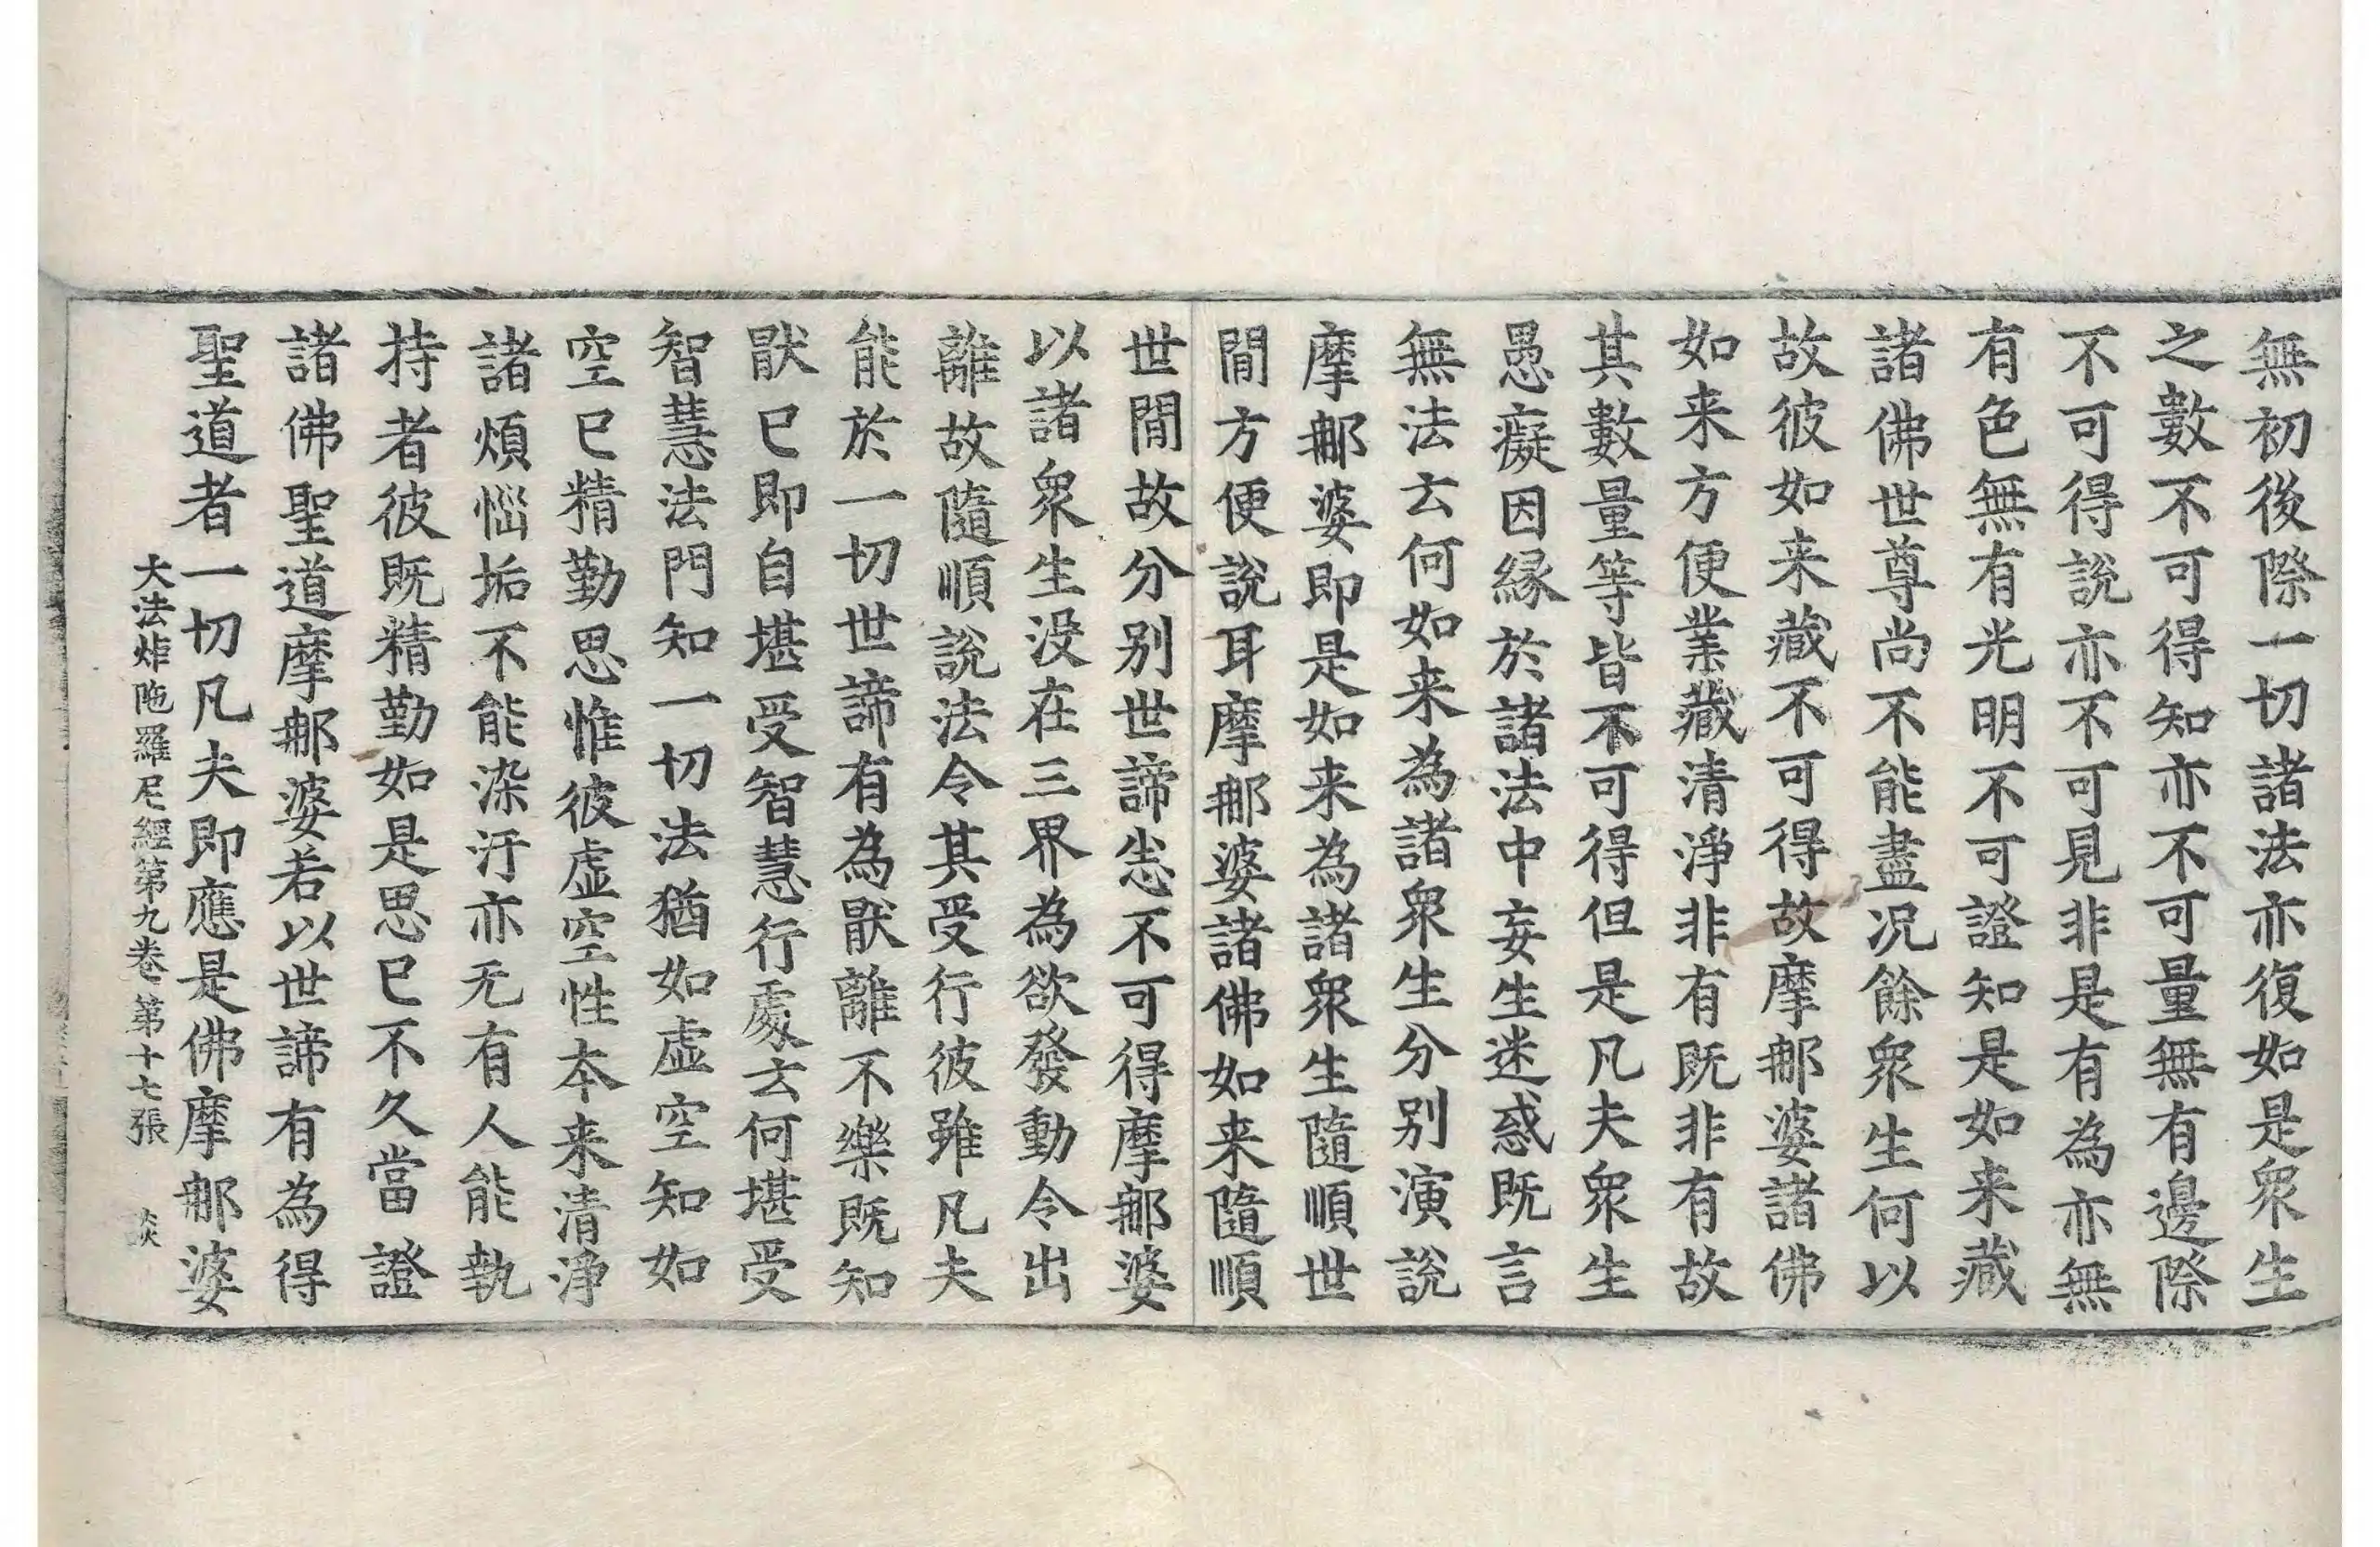 無初後際一切諸法亦復如是衆生
之數不可得知亦不可量無有邊際
不可得説亦不可見非是有為亦無
有色無有光明不可證知是如来藏
諸佛世尊尚不能盡况餘衆生何以
故彼如来藏不可得故摩那婆諸佛
如来方便業藏清淨非有既非有故
其數量等皆不可得但是凡夫衆生
愚癡因縁於諸法中妄生迷惑既言
無法云何如来為諸衆生分别演説
摩那婆即是如来為諸衆生隨順世
間方便説耳摩那婆諸佛如来隨順
世間故分别世諦恙不可得摩那婆
以諸衆生没在三界為欲發動令出
離故隨順説法令其受行彼雖凡夫
能於一切世諦有為猒離不樂既知
猒已即自堪受智慧行處云何堪受
智慧法門知一切法猶如虚空知如
空已精勤思惟彼虚空性本来清淨
諸煩惱垢不能染汙亦无有人能執
持者彼既精勤如是思已不久當證
諸佛聖道摩那婆若以世諦有為得
聖道者一切凡夫即應是佛摩那婆
大法炬陁羅尼經第九卷 第十七張 談